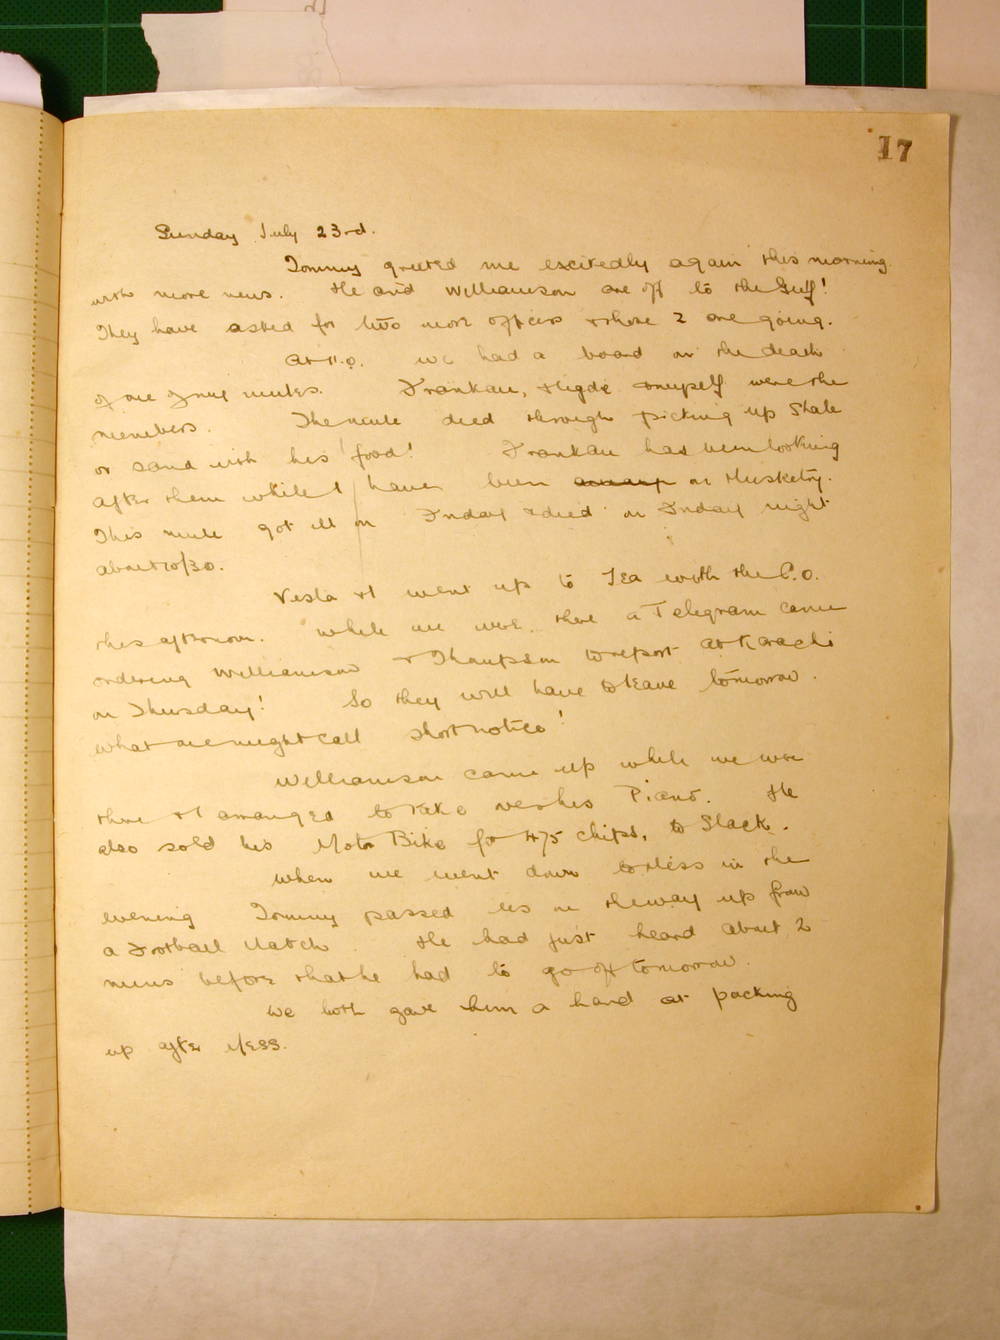 17
Sunday July 23rd.
Tommy greeted me excitedly again this morning
with more news. He and Williamson are off to the Gulf!
They have asked for two more officers & those 2 are going.
At 11.0. we had a board on the death
of one of my mules. Frankau, Hyde & myself were the
members. The mule died through picking up Shale
or sand with his food! Frankau has been looking
after them while I have been on Musketry.
This mule got ill on Friday & died on Friday night
about 10/30.
Vesta & I went up to Tea with the C.O.
this afternoon. While we were there a Telegram came
ordering Williamson & Thompson to report at Karachi
on Thursday! So they will have to leave tomorrow.
What one might call short notice!
Williamson came up while we were
there & I arranged to take over his Piano. He
also sold his Motor Bike for 475 chips, to Slack.
When we went down to Mess in the
evening Tommy passed us on the way up from
a Football Match. He had just heard about 2
mins before that he had to go off tomorrow.
We both gave him a hand at packing
up after Mess.